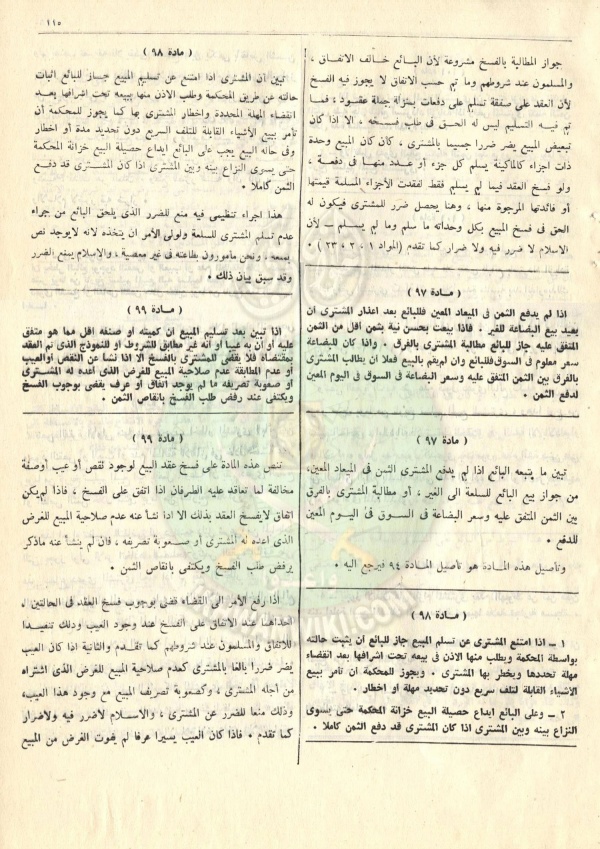 ١١٥
جواز المطالبة بالفسخ مشروعة لأن البائع خالف الاتفاق ،
والمسلمون عند شروطهم وما تم حسب الاتفاق لا يجوز فيه الفسخ
لأن العقد على صفقة تسلم على دفعات بمنزلة جملة عقود ، فما
تم فيه التسليم ليس له الحق فى طلب فسخه ، الا اذا كان
تبعيض المبيع يضر ضررا جسيما بالمشترى ، كان كان المبيع وحدة
ذات اجزاء كالماكينة يسلم كل جزء أو عدد منها فى دفعة ،
ولو فسخ العقد فيما لم يسلم فقط لفقدت الأجزاء المسلمة قيمتها
أو فائدتها المرجوة منها ، وهنا يحصل ضرر للمشترى فيكون له
الحق فى فسخ المبيع بكل وحداته ما سلم وما لم يسلم ــ لأن
الاسلام لا ضرر فيه ولا ضرار كما تقدم ( المواد ١ ، ٢ ، ٢٣ ) ٠
( مادة ٩٧ )
اذا لم يدفع الثمن فى الميعاد المعين فللبائع بعد اعذار المشترى ان
يعيد بيع البضاعة للغير . فاذا بيعت بحسن نية بثمن اقل من الثمن
المتفق عليه جاز للبائع مطالبة المشترى بالفرق . واذا كان للبضاعة
سعر معلوم فى السوق فللبائع وان لم يقم بالبيع فعلا ان يطالب المشترى
بالفرق بين الثمن المتفق عليه وسعر البضاعة فى السوق فى اليوم المعين
لدفع الثمن .
( مادة ٩٧ )
تبين ما يتبعه البائع اذا لم يدفع المشترى الثمن فى الميعاد المعين،
من جواز بيع البائع للسلعة الى الغير ، أو مطالبة المشترى بالفرق
بين الثمن المتفق عليه وسعر البضاعة فى السوق فى اليوم المعين
للدفع .
وتأصيل هذه المادة هو تأصيل المادة ٩٤ فيرجع اليه .
( مادة ٩٨ )
١ ــ اذا امتنع المشترى عن تسلم المبيع جاز للبائع ان يثبت حالته
بواسطة المحكمة ويطلب منها الاذن فى بيعه تحت اشرافها بعد انقضاء
مهلة تحددها ويخطر بها المشترى . ويجوز للمحكمة ان تأمر ببيع
الأشياء القابلة للتلف سريع دون تحديد مهلة أو اخطار .
٢ ــ وعلى البائع ايداع حصيلة البيع خزانة المحكمة حتى يسوى
النزاع بينه وبين المشترى اذا كان المشترى قد دفع الثمن كاملا .
( مادة ٩٨ )
تبين أن المشترى اذا امتنع عن تسليم المبيع جاز للبائع اثبات
حالته عن طريق المحكمة وطلب الاذن منها ببيعه تحت اشرافها بعد
انقضاء المهلة المحددة واخطار المشترى بها كما يجوز للمحكمة أن
تأمر ببيع الأشياء القابلة للتلف السريع دون تحديد مدة أو اخطار
وفى حاله البيع يجب على البائع ايداع حصيلة البيع خزانة المحكمة
حتى يسوى النزاع بينه وبين المشترى اذا كان المشترى قد دفع
الثمن كاملا .
هذا اجراء تنظيمى فيه منع للضرر الذى يلحق البائع من جراء
عدم تسلم المشترى للسلعة ولولى الأمر ان يتخذه لانه لايوجد نص
يمنعه . ونحن مأمورون بطاعته فى غير معصية ، والاسلام يمنع الضرر
وقد سبق بيان ذلك .
( مادة ٩٩ )
اذا تبين بعد تسليم المبيع ان كميته او صنفه اقل مما هو متفق
عليه او ان به عيبا او أنه غير مطابق للشروط او للنموذج الذى تم العقد
بمقتضاه فلا يقضى للمشترى بالفسخ الا اذا نشا عن النقص اوالعيب
او عدم المطابقة عدم صلاحية المبيع للغرض الذى اعده له المشترى
او صعوبة تصريفه ما لم يوجد اتفاق او عرف يقضى بوجوب الفسخ
ويكتفى عند رفض طلب الفسخ بانقاص الثمن .
( مادة ٩٩ )
تنص هذه المادة على فسخ عقد البيع لوجود نقص أو عيب أوصفة
مخالفة لما تعاقد عليه الطرفان اذا اتفق على الفسخ ، فاذا لم يكن
اتفاق لايفسخ العقد بذلك الا اذا نشأ عنه عدم صلاحية المبيع للغرض
الذى اعده له المشترى أو صعوبة تصريفه ، فان لم ينشأ عنه ماذكر
يرفض طلب الفسخ ويكتفى بانقاص الثمن .
اذا رفع الأمر الى القضاء قضى بوجوب فسخ العقد فى الحالتين
احداهما عند الاتفاق على الفسخ عند وجود العيب وذلك تنفيذا
للاتفاق والمسلمون عند شروطهم كما تقدم والثانية اذا كان العيب
يضر ضررا بالغا بالمشترى كعدم صلاحية المبيع للغرض الذى اشتراه
من أجله المشترى ، وكصعوبة تصريف المبيع مع وجود هذا العيب،
وذلك منعا للضرر عن المشترى ، والاسلام لاضرر فيه ولاضرار
كما تقدم . فاذا كان العيب يسيرا عرفا لم يفوت الغرض من المبيع